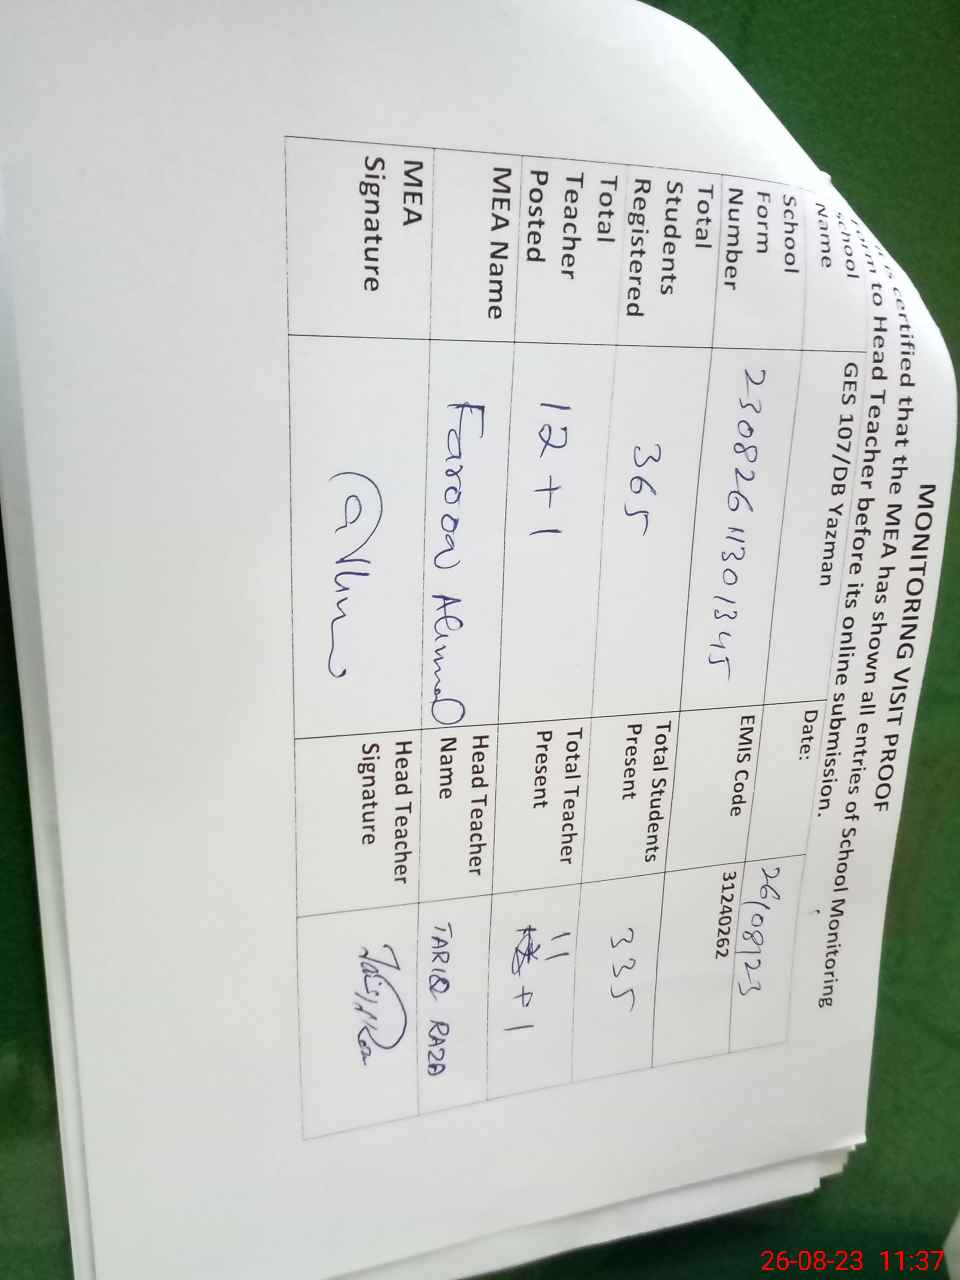 MONITORING VISIT PROOF
certified that the MEA has shown all entries of School Monitoring
Form to Head Teacher before its online submission.
School
Name
GES 107/DB Yazman
Date:
26/08/23
School
Form
Number
23082611301345
EMIS Code
31240262
Total
Students
Registered
365
Total Students
Present
335
Total
Teacher
Posted
12 + 1
Total Teacher
Present
11 + 1
MEA Name
Farooq Ahmad
Head Teacher
Name
TARIQ RAZA
MEA
Signature
Head Teacher
Signature
26-08-23 11:37